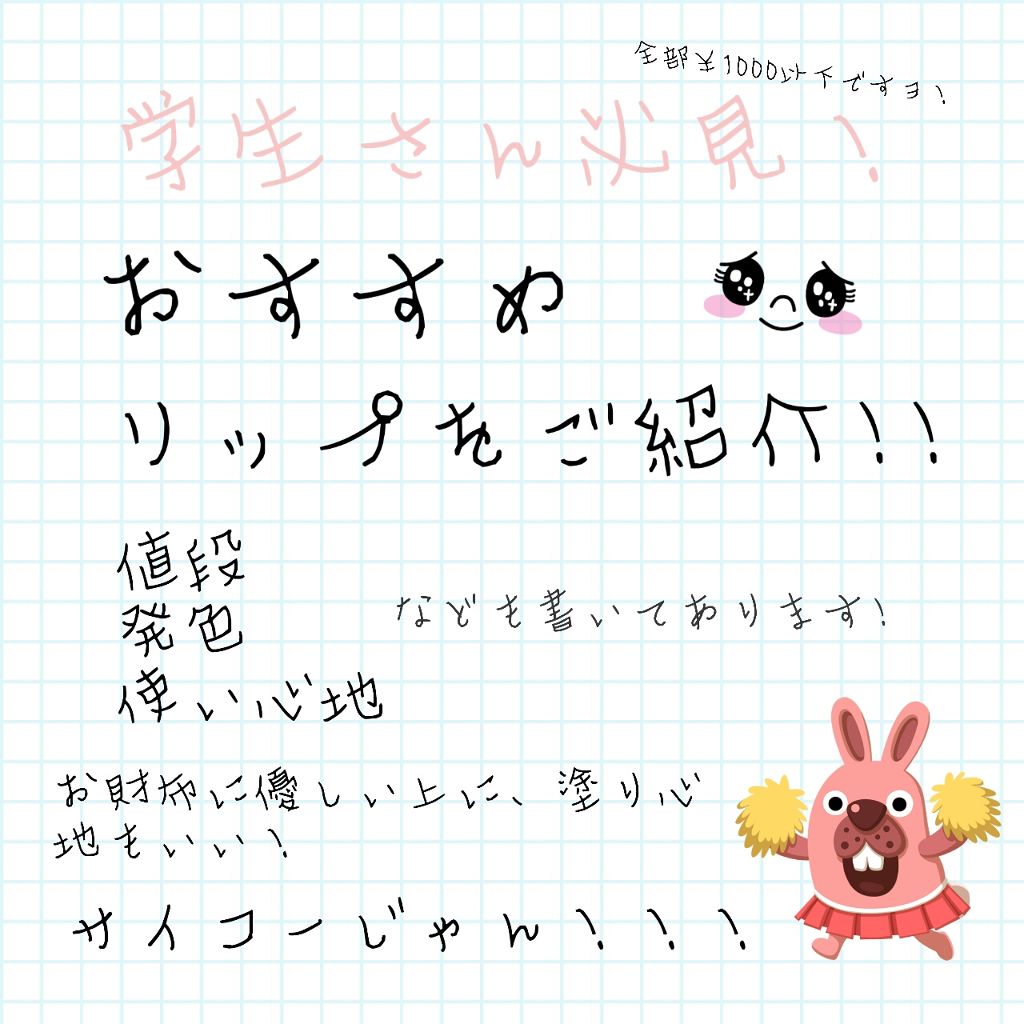 全部¥1000以下ですヨ!
学生さん必見!
おすすめ
リップをご紹介!!
値段
発色
使い心地
なども書いてあります!
お財布に優しい上に、塗り心
地もいい!
サイコーじゃん!!!